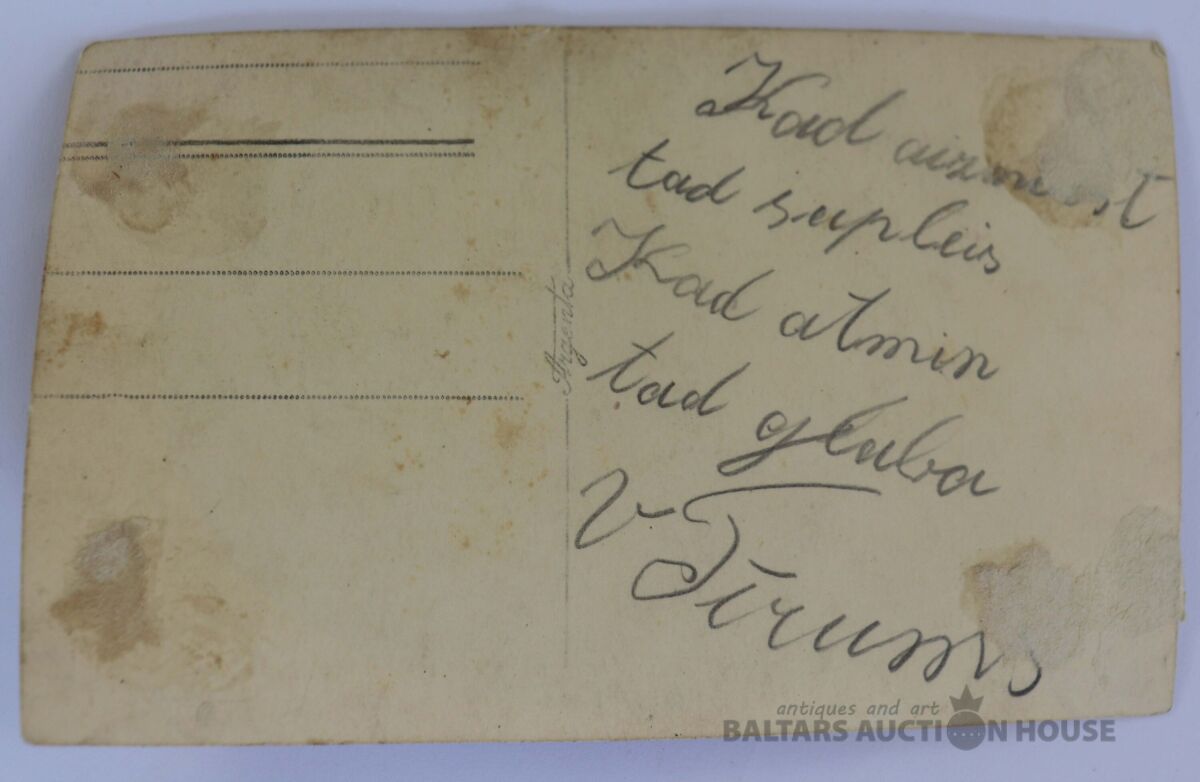 Kad aizmirst
tad supleis
Kad atmin
tad glaba
V Tīrums
Argenta
antiques and art
BALTARS AUCTION HOUSE